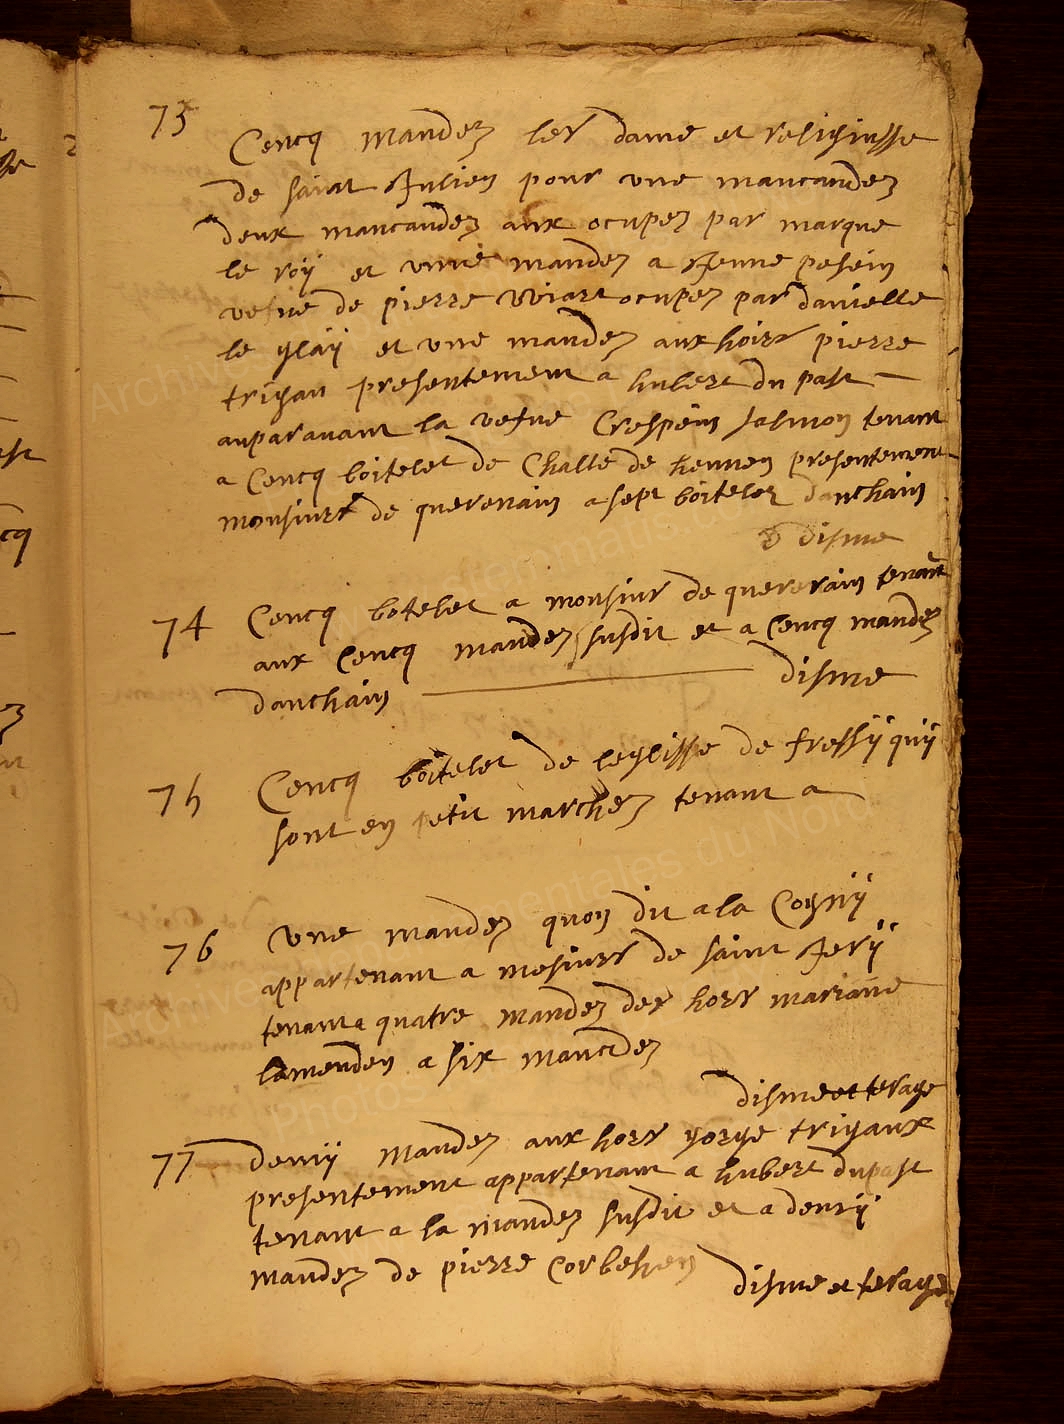 73
Cencq mandez les dame et resigiusse
de saint Julien pour une mancaudez
deux mancaudez aux ocupez par marque
le roÿ et unne mandez a Jenne pesein
vefue de pierre wiart ocupez par danielle
le glaÿ et une mandez aux hoirs pierre
trigau presentement a hubert du past
auparavant la vefue Crespein Jasmon tenant
a Cencq boitelet de Challe de hennen presentement
monsiurs de querenain a sept boitelez danchain
disme
74 Cencq botelet a monsiur de querenain tenant
aux Cencq mandez susdit et a Cencq mandez
danchain disme
75 Cencq boitelet de leglisse de fressÿ quÿ
sont en petit marchez tenant a
76 une mandez quon dit a la Cognÿ
appartenant a mesiurs de saint Jerÿ
tenant a quatre mandez des hors mariane
lamenden a six maucdez
disme et terage
77 demÿ mandez aux hors gorge trigaux
presentement appartenant a hubert dupast
tenant a la mandez susdit et a demÿ
mandez de pierre Corbehen
disme et terage